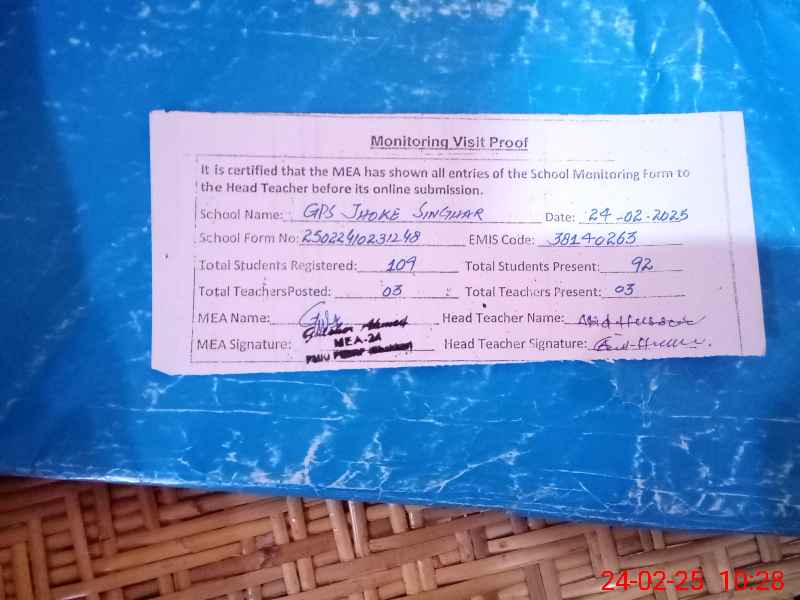 Monitoring Visit Proof
It is certified that the MEA has shown all entries of the School Monitoring Form to
the Head Teacher before its online submission.
School Name: GPS JHOKE SINGHAR Date: 24-02-2025
School Form No: 2502240231248 EMIS Code: 38140263
Total Students Registered: 109 Total Students Present: 92
Total TeachersPosted: 03 Total Teachers Present: 03
MEA Name: Head Teacher Name:
Ahmed
MEA Signature: MEA-24 Head Teacher Signature:
24-02-25 10:28